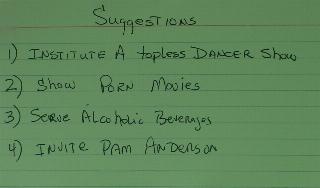 Suggestions
1) INSTITUTE A topless DANCER Show
2) Show PORN Movies
3) Serve Alcoholic Beverages
4) INVITE PAM ANDERSON